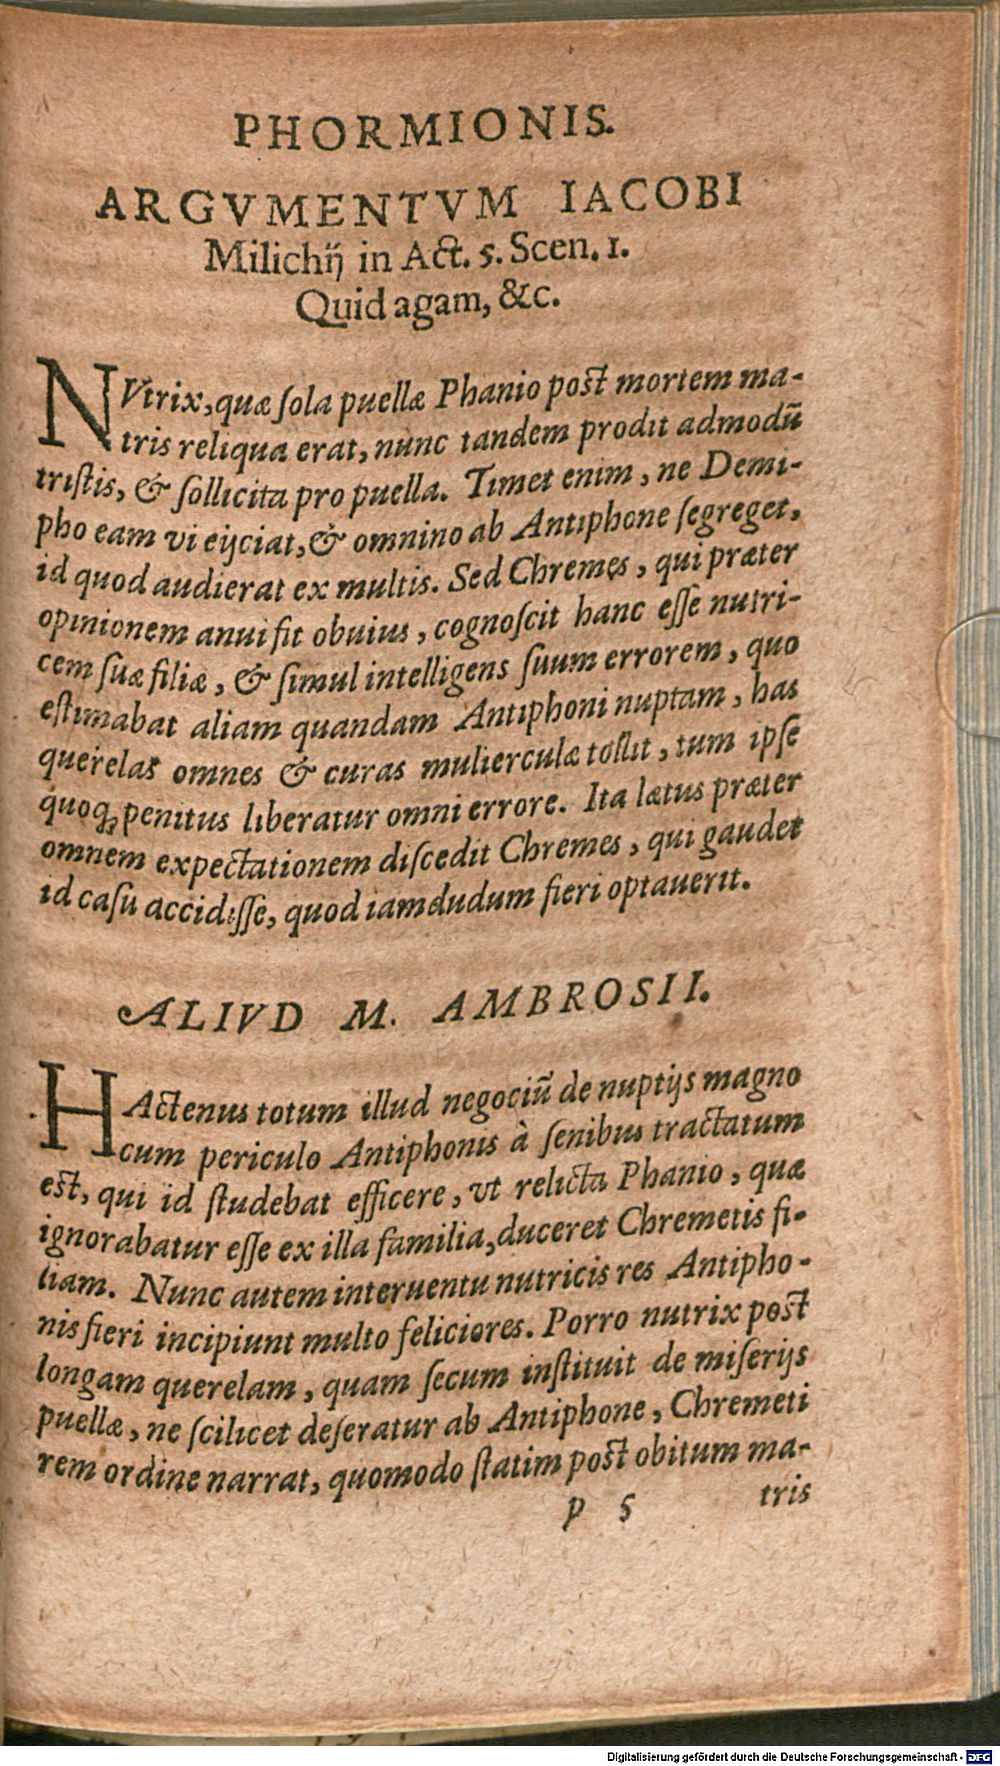 PHORMIONIS.
ARGVMENTVM IACOBI
Milichij in Act. 5. Scen. 1.
Quid agam, &c.
NVtrix, quæ ſola puellæ Phanio poſt mortem ma-
tris reliqua erat, nunc tandem prodit admodū
triſtis, & ſollicita pro puella. Timet enim, ne Demi-
pho eam vi eijciat, & omnino ab Antiphone ſegreget,
id quod audierat ex multis. Sed Chremes, qui præter
opinionem anui fit obuius, cognoſcit hanc eſſe nutri-
cem ſuæ filiæ, & ſimul intelligens ſuum errorem, quo
eſtimabat aliam quandam Antiphoni nuptam, has
querelas omnes & curas mulierculæ tollit, tum ipſe
quoq; penitus liberatur omni errore. Ita lætus præter
omnem expectationem diſcedit Chremes, qui gaudet
id caſu accidiſſe, quod iamdudum fieri optauerit.
ALIVD M. AMBROSII.
HActenus totum illud negociū de nuptijs magno
cum periculo Antiphonis à ſenibus tractatum
eſt, qui id ſtudebat efficere, vt relicta Phanio, quæ
ignorabatur eſſe ex illa familia, duceret Chremetis fi-
liam. Nunc autem interuentu nutricis res Antipho-
nis fieri incipiunt multo feliciores. Porro nutrix poſt
longam querelam, quam ſecum inſtituit de miſerijs
puellæ, ne ſcilicet deſeratur ab Antiphone, Chremeti
rem ordine narrat, quomodo ſtatim poſt obitum ma-
p 5 tris
Digitalisierung gefördert durch die Deutsche Forschungsgemeinschaft - DFG